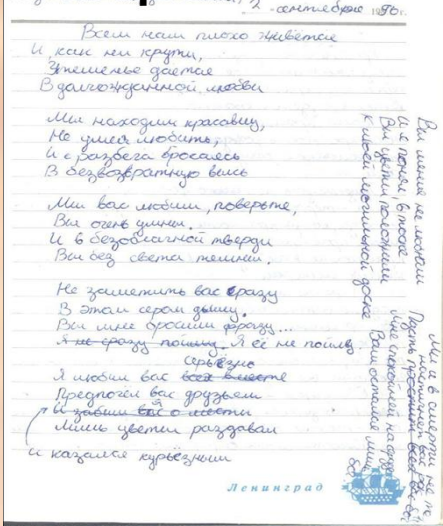 2 сентября 1990 г.
Всем нам плохо живётся
И, как ни крути,
Утешенье даётся
В долгожданной любви
Мы находим красавиц,
Не умея любить,
И с разбега бросаясь
В безвозвратную высь
Мы вас любим, поверьте,
Вы очень умны.
И в безоблачной тверди
Вы без света темны.
Не заметить вас сразу
В этом сером дыму.
Вы мне бросили фразу...
Я не сразу пойму. Я её не пойму
серьёзно
Я любил вас всех вместе
Предпочёл вас друзьям
И забыл вас о мести
Лишь цветы раздавал
И казался курьёзным
Вы меня не любили
И я понял, в тоске
Вы цветы положили
К моей могильной доске
Мы и в смерти не
Пусть простит всех вас
Мне спокойней на
Вам остался
Ленинград